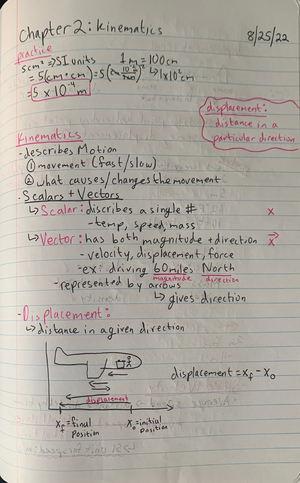 Chapter 2: Kinematics
8/25/22
practice
5cm² ⇒ SI units
1m = 100cm
↳ 1x10²cm
= 5(cm·cm) = 5
= 5 x 10⁻⁴ m
displacement:
distance in a
particular direction
Kinematics
-describes Motion
① movement (fast/slow)
② what causes/changes the movement
-Scalars + Vectors
↳ Scalar: discribes a single # x
-temp, speed, mass
↳ Vector: has both magnitude + direction x⃗
- velocity, displacement, force
-ex: driving 60miles North
magnitude direction
-represented by arrows
↳ gives direction
-Displacement:
↳ distance in a given direction
displacement = Xf - X₀
displacement
Xf = final
position
X₀ = initial
position